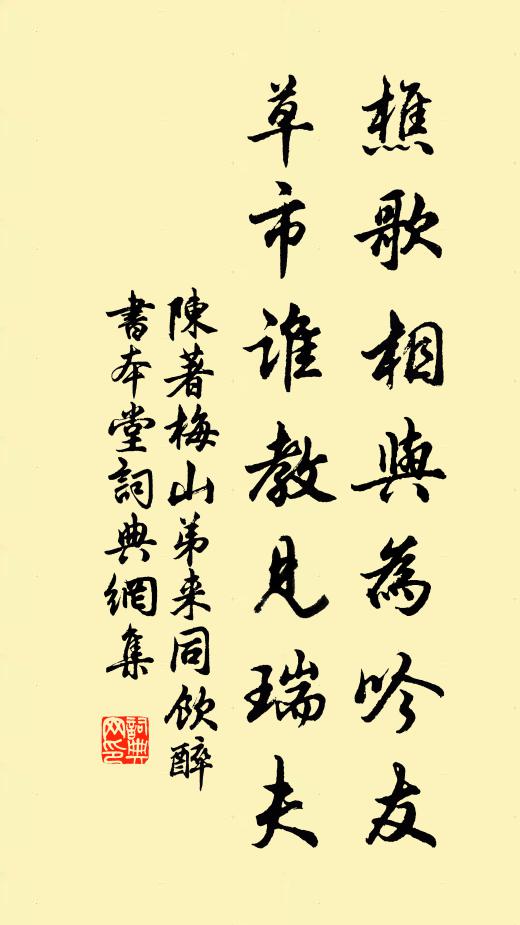 樵歌相與為吟友
草市誰教見瑞夫
陳著梅山弟来同飲醉
書本堂詞典網集
詞典网印